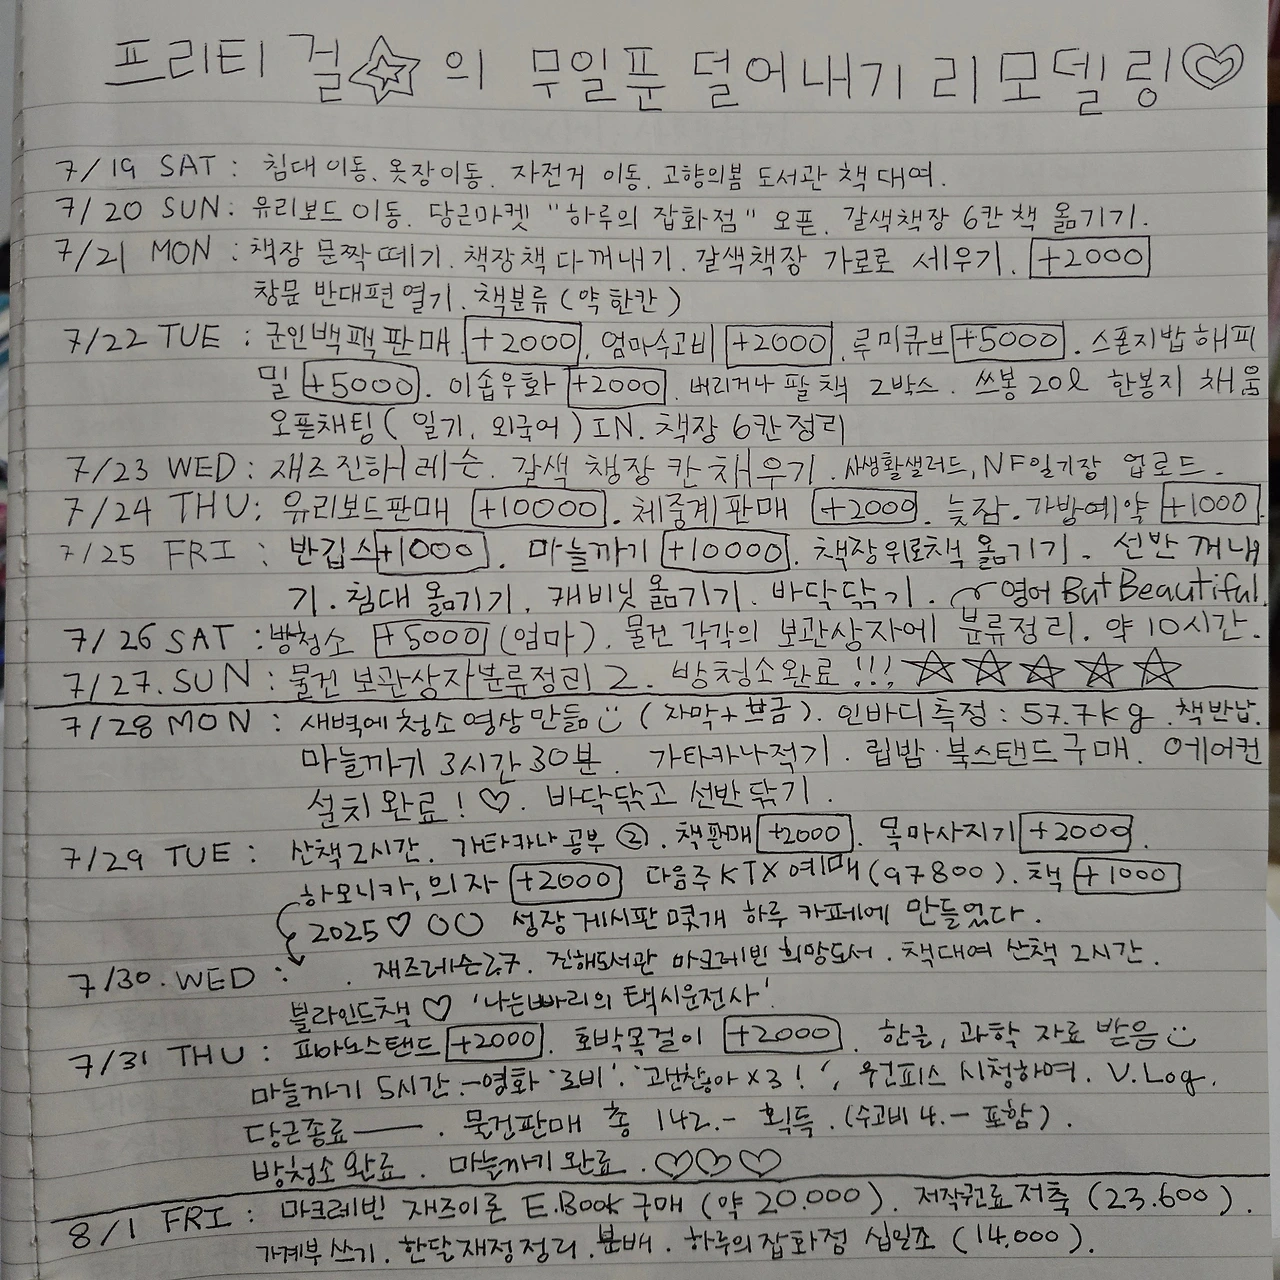 프리티 걸☆의 무일푼 덜어내기 리모델링♡
7/19 SAT : 침대 이동. 옷장이동. 자전거 이동. 고향의봄 도서관 책 대여.
7/20 SUN : 유리보드 이동. 당근마켓 "하루의 잡화점" 오픈. 갈색책장 6칸 책 옮기기.
7/21 MON : 책장 문짝 떼기. 책장책 다꺼내기. 갈색책장 가로로 세우기. +2000
창문 반대편 열기. 책분류 (약 한칸)
7/22 TUE : 군인백팩 판매 +2000. 엄마수고비 +2000. 루미큐브 +5000. 스폰지밥 해피
밀 +5000. 이솝우화 +2000. 버리거나 팔 책 2박스. 쓰봉 20ℓ 한봉지 채움
오픈채팅 (일기, 외국어) IN. 책장 6칸 정리
7/23 WED : 재즈 진해 레슨. 갈색 책장 칸 채우기. 사생활샐러드, NF일기장 업로드.
7/24 THU : 유리보드판매 +10000. 체중계 판매 +2000. 늦잠. 가방예약 +1000.
7/25 FRI : 반깁스 +1000. 마늘까기 +10000. 책장위로책 옮기기. 선반 꺼내
기. 침대 옮기기. 캐비닛 옮기기. 바닥닦기. 영어 But Beautiful.
7/26 SAT : 방청소 +5000 (엄마). 물건 각각의 보관상자에 분류정리. 약 10시간.
7/27. SUN : 물건 보관상자분류정리 2. 방청소완료!!! ☆☆☆☆☆
7/28 MON : 새벽에 청소 영상 만듦 (자막+브금). 인바디 측정 : 57.7kg. 책반납.
마늘까기 3시간 30분. 가타카나적기. 립밤·북스탠드 구매. 에어컨
설치 완료! ♡. 바닥닦고 선반 닦기.
7/29 TUE : 산책 2시간. 가타카나 공부 ②. 책판매 +2000. 목마사지기 +2000.
하모니카, 의자 +2000 다음주 KTX 예매 (97800). 책 +1000
2025♡○○ 성장 게시판 몇개 하루 카페에 만들었다.
7/30. WED : . 재즈레슨27. 진해도서관 마크레빈 희망도서. 책대여 산책 2시간.
블라인드책 ♡ '나는 빠리의 택시운전사'.
7/31 THU : 피아노스탠드 +2000. 호박목걸이 +2000. 한글, 과학 자료 받음
마늘까기 5시간 - 영화 '로비'. '괜찮아 x3!', 원피스 시청하며. V.Log.
당근종료——. 물건판매 총 142.- 획득. (수고비 4.- 포함).
방청소 완료. 마늘까기 완료. ♡♡♡
8/1 FRI : 마크레빈 재즈이론 E.Book 구매 (약 20.000). 저작권료 저축 (23.600).
가계부 쓰기. 한달재정정리. 분배. 하루의잡화점 십일조 (14,000).